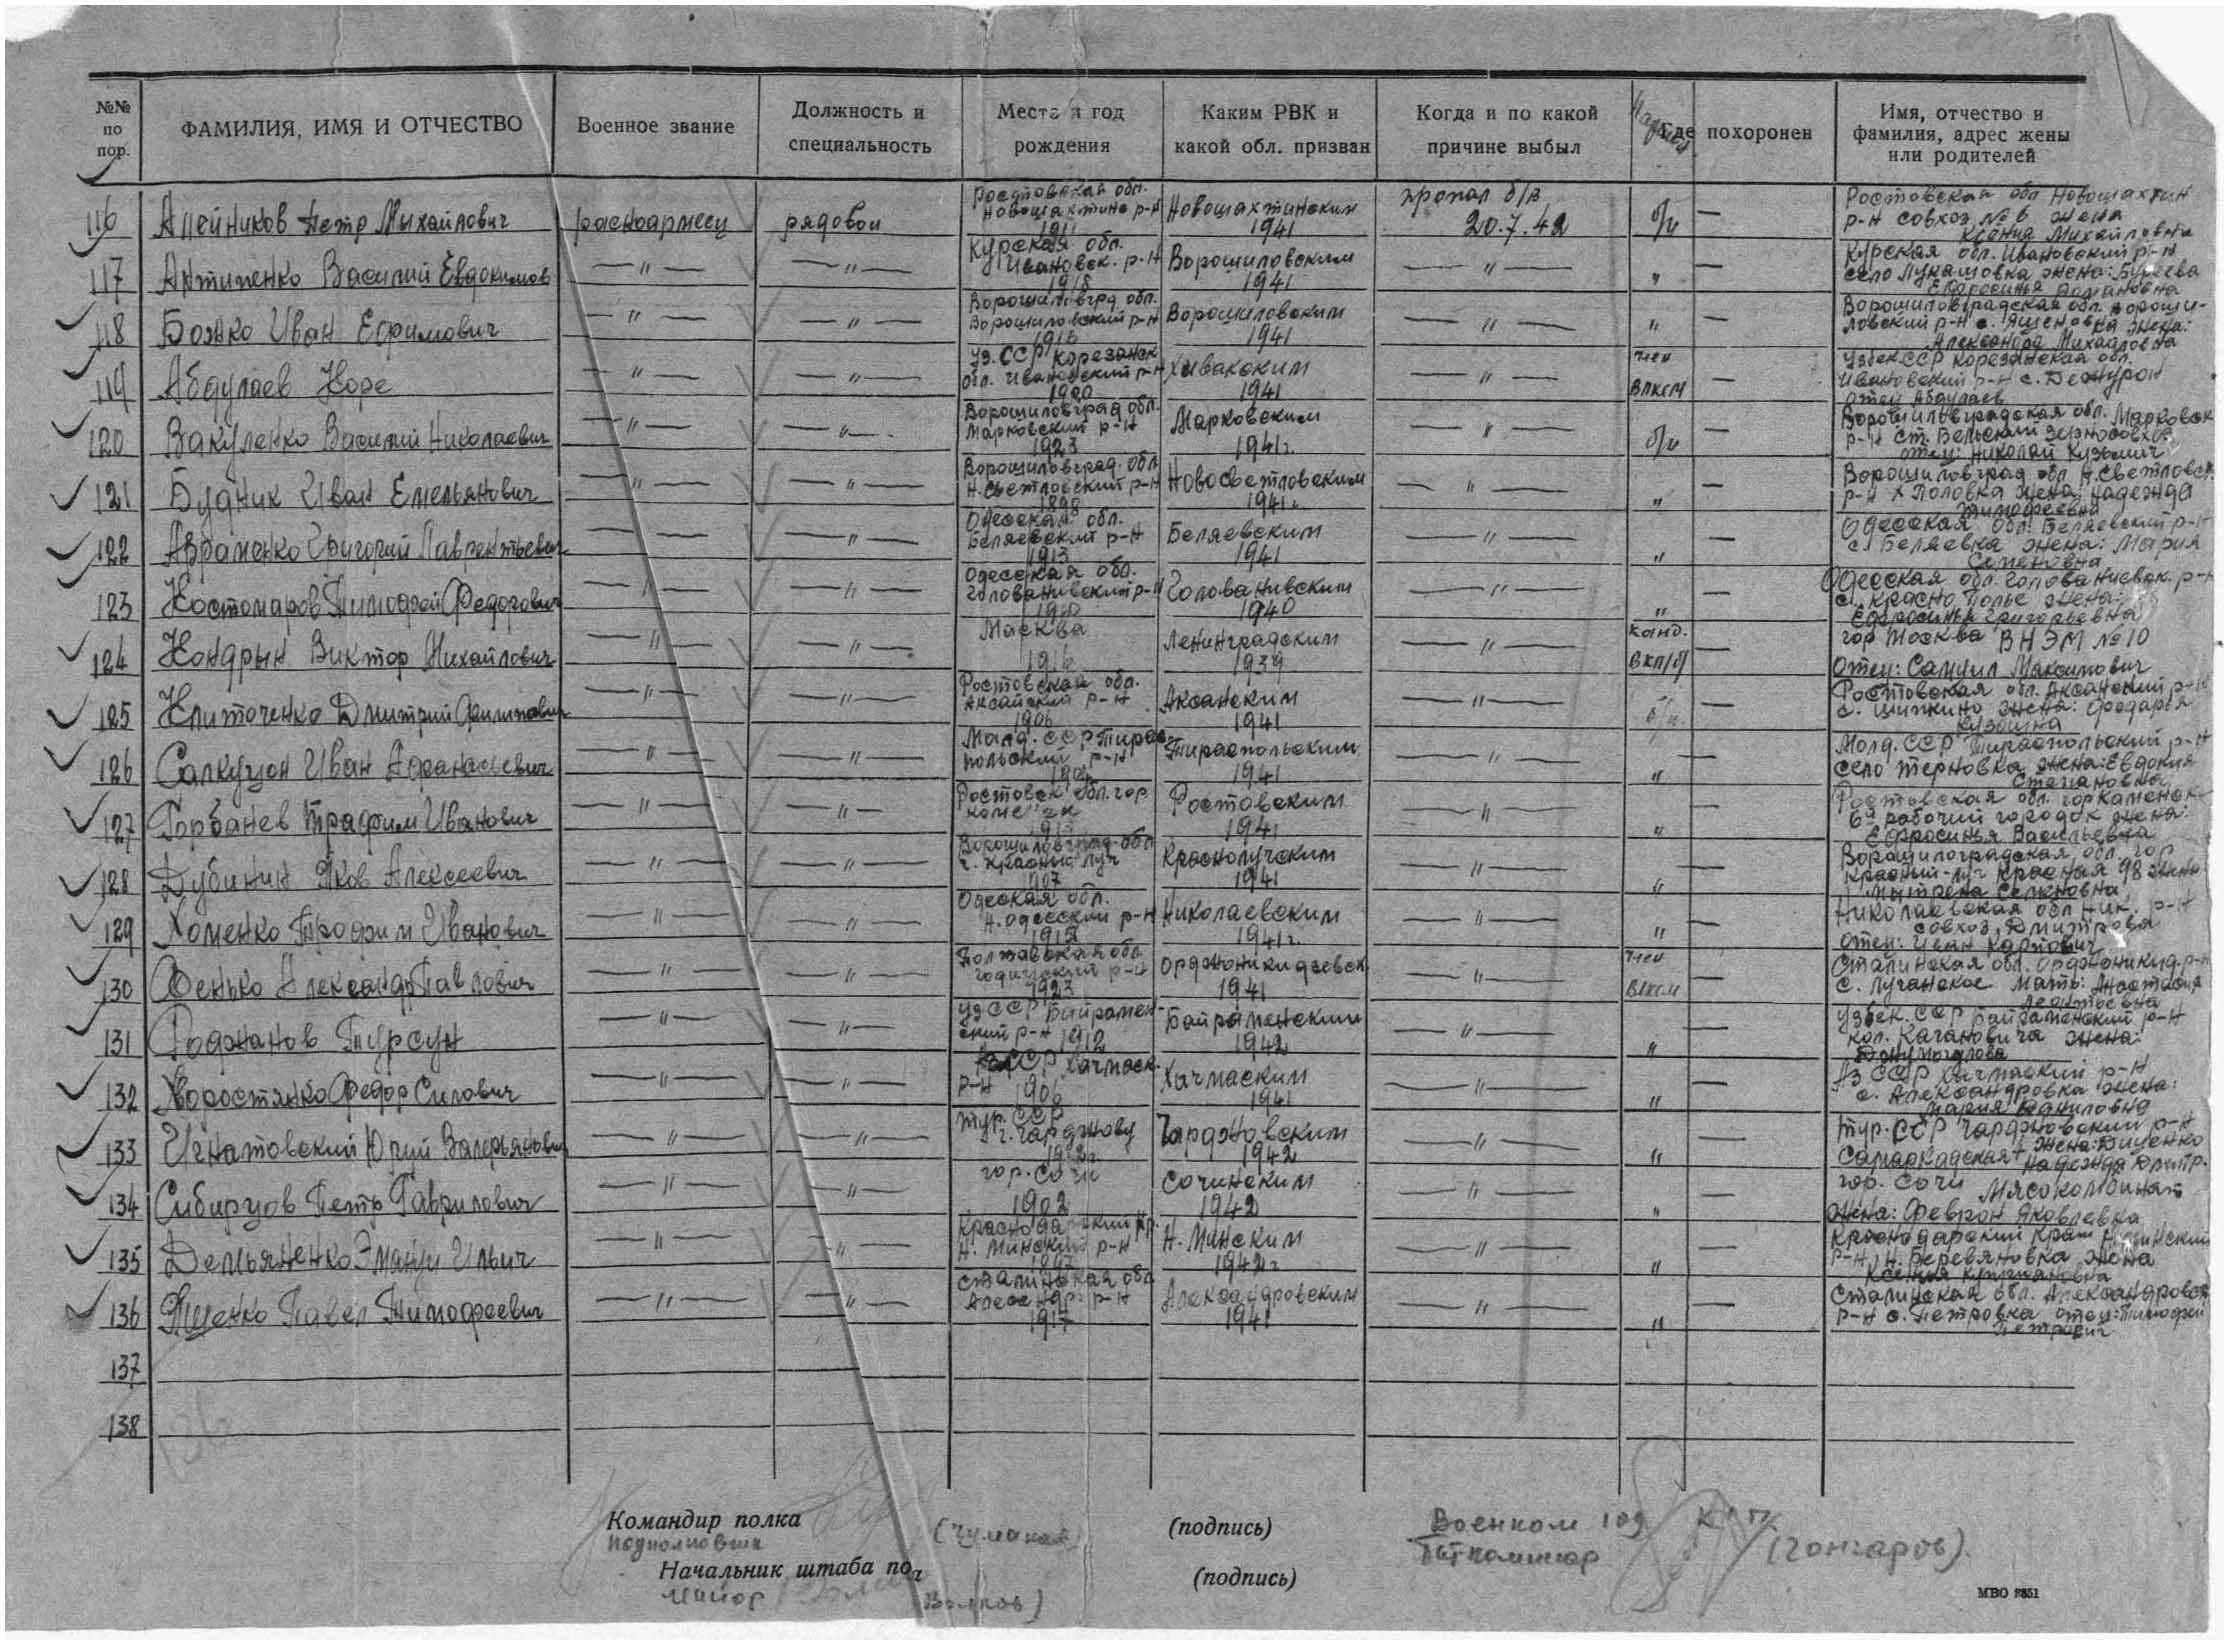 №№ по пор.
ФАМИЛИЯ, ИМЯ И ОТЧЕСТВО
Военное звание
Должность и специальность
Место и год рождения
Каким РВК и какой обл. призван
Когда и по какой причине выбыл
Где похоронен
Имя, отчество и фамилия, адрес жены или родителей
116 Алейников Петр Михайлович красноармеец рядовой Ростовская обл. Новошахтинс р-н 1911 Новошахтинским 1941 пропал б/в 20.7.42 б/п — Ростовская обл Новошахтин р-н совхоз № 6 жена Ксения Михайловна
117 Антипенко Василий Евдокимов —"— —"— Курская обл. Ивановск. р-н 1918 Ворошиловским 1941 —"— " — Курская обл. Ивановский р-н село Лукашовка жена: Ефросинья
118 Божко Иван Ефримович —"— —"— Ворошиловгрд обл. Ворошиловский р-н 1916 Ворошиловским 1941 —"— " — Ворошиловградская обл. Вороши-ловский р-н с. жена: Александра Михайловна
119 Абдулаев Коре —"— —"— Уз. ССР Корезанск обл. Ивановский р-н 1920 Хивакским 1941 —"— член ВЛКСМ — Узбек ССР Корезанская обл. Ивановский р-н с. отец Абдулаев
120 Вакуленко Василий Николаевич —"— —"— Ворошиловград обл. Марковский р-н 1923 Марковским 1941г. —"— б/п — Ворошиловградская обл. Марковск р-н ст. Бельский Зерносовхоз отец: Николай Кузьмич
121 Будник Иван Емельянович —"— —"— Ворошиловград. обл Н.Светловский р-н 1898 Новосветловским 1941г. —"— " — Ворошиловград обл Н.Светловск. р-н х Поповка жена: Надежда Тимофеевна
122 Авраменко Григорий Лаврентьевич —"— —"— Одесская обл. Беляевский р-н 1913 Беляевским 1941 —"— " — Одесская обл. Беляевский р-н с. Беляевка жена: Мария Семеновна
123 Костомаров Тимофей Федорович —"— —"— Одесская обл. Голованивский р-н Голованивским 1940 —"— " — Одесская обл. Голованиевск. р-н с. Красно Полье жена: Ефросинья Григорьевна
124 Кондрын Виктор Михайлович —"— —"— Масква 1916 Ленинградским 1939 —"— канд. ВКП/б/ — гор Москва ВНЭМ № 10 отец: Самуил Максимович
125 Клиточенко Дмитрий Филипович —"— —"— Ростовская обл. Аксайский р-н 1906 Аксанским 1941 —"— б/п. — Ростовская обл. Аксанский р-н с. Шипкино жена:
126 Салкуцон Иван Афанасьевич —"— —"— Молд. ССР Тирас-польский р-н Тираспольским 1941 —"— " — Молд. ССР Тираспольский р-н село Терновка жена: Евдокия Степановна
127 Горбанев Трафим Иванович —"— —"— Ростовск обл. гор Ростовским 1941 —"— " — Ростовская обл. гор Каменск 6й рабочий городок жена: Ефросинья Васильевна
128 Дубинин Яков Алексеевич —"— —"— Ворошиловград. обл г. Красный луч 1907 Краснолучским 1941 —"— " — Ворошилоградская обл. гор Красный-луч Красная 98 жена
129 Хоменко Трофим Иванович —"— —"— Одеская обл. Н.Одесский р-н 1912 Николаевским 1941г. —"— " — Николаевская обл Ник. р-н совхоз Дмитрова отец: Иван Карпович
130 Фенько Александр Павлович —"— —"— Полтавская обл р-н 1923 Орджоникидзевск 1941 —"— член ВЛКСМ — Сталинская обл. Орджоникид. р-н с. Луганское мать: Леонтьевна
131 Роджанов Турсун —"— —"— Уз ССР Байрамен-ский р-н 1912 Байраменским 1942 —"— " — Узбек. ССР Байраменский р-н кол. Кагановича жена:
132 Хворостянко Федор Силович —"— —"— ССР Хачмаск. р-н 1906 Хачмаским 1941 —"— " — Аз ССР Хачмаский р-н с. Александровка жена: Мария Даниловна
133 Игнатовский Юрий Валерьянович —"— —"— Тур. ССР г. Чарджову Чарджовским 1942 —"— " — Тур. ССР Чарджовский р-н Самаркадская жена: Диценко Надежда Дмитр.
134 Сибирцов Петр Гаврилович —"— —"— гор. Сочи 1902 Сочинским 1942 —"— " — гор. Сочи Мясокомбинат жена: Феврон Яковлевка
135 Демьяненко Ильич —"— —"— Краснодарский кр. Н. Минский р-н Н. Минским 1942г —"— " — Краснодарский край р-н, Н. Деревяновка жена Ксения
136 Ященко Павел Тимофеевич —"— —"— Сталинская обл р-н 1917 Александровским 1941 —"— " — Сталинская обл. Александровск р-н с. Петровка отец: Тимофей Петрович
137
138
Командир полка (подпись) Военком 109 К.П.
подполковник
(Гончаров).
Начальник штаба (подпись)
майор Волков)
МВО